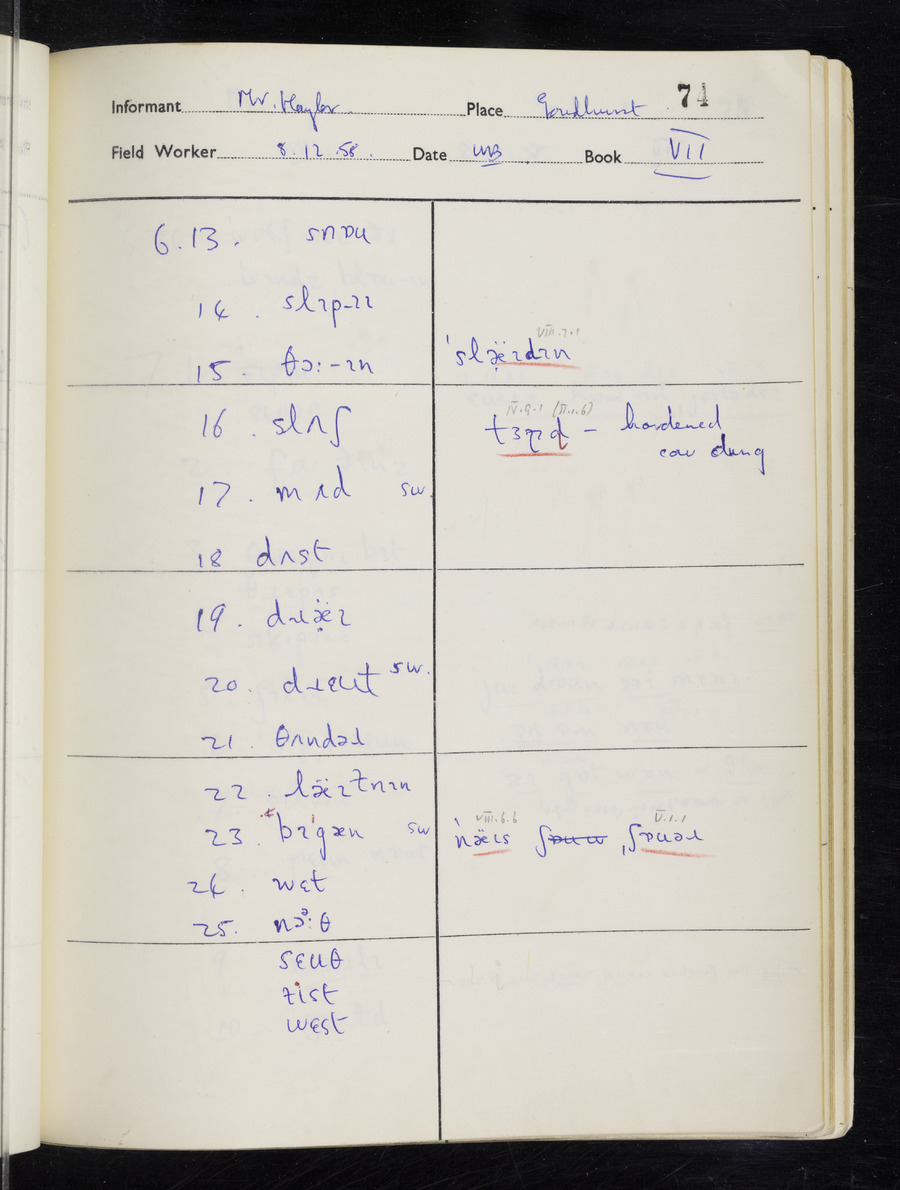 74
Informant Mr. Haylor Place Goudhurst
Field Worker 8.12.58. Date WB Book VII
6.13. snɒu
14. slɪp-ɪɪ
VIII.7.1
15 θɔ:-ɪn ˈslæ̣̈ɪdɪn
IV.9.1 (II.1.6)
16. slʌʃ tɜʈɪd – hardened
cow dung
17. mʌd sw.
18 dʌst
19. dɹæ̣̈ɪ
20. dɹɛut sw.
21. θʌndəɹ
22. læ̈ɪtnɪn
VIII.6.6 V.1.1
23. bɪgæn sw ˈnæ̈ɪs ʃɒuəɹ
24. wɛt
25. nɔ:ᵊθ
sɛuθ
ɪist
wɛst